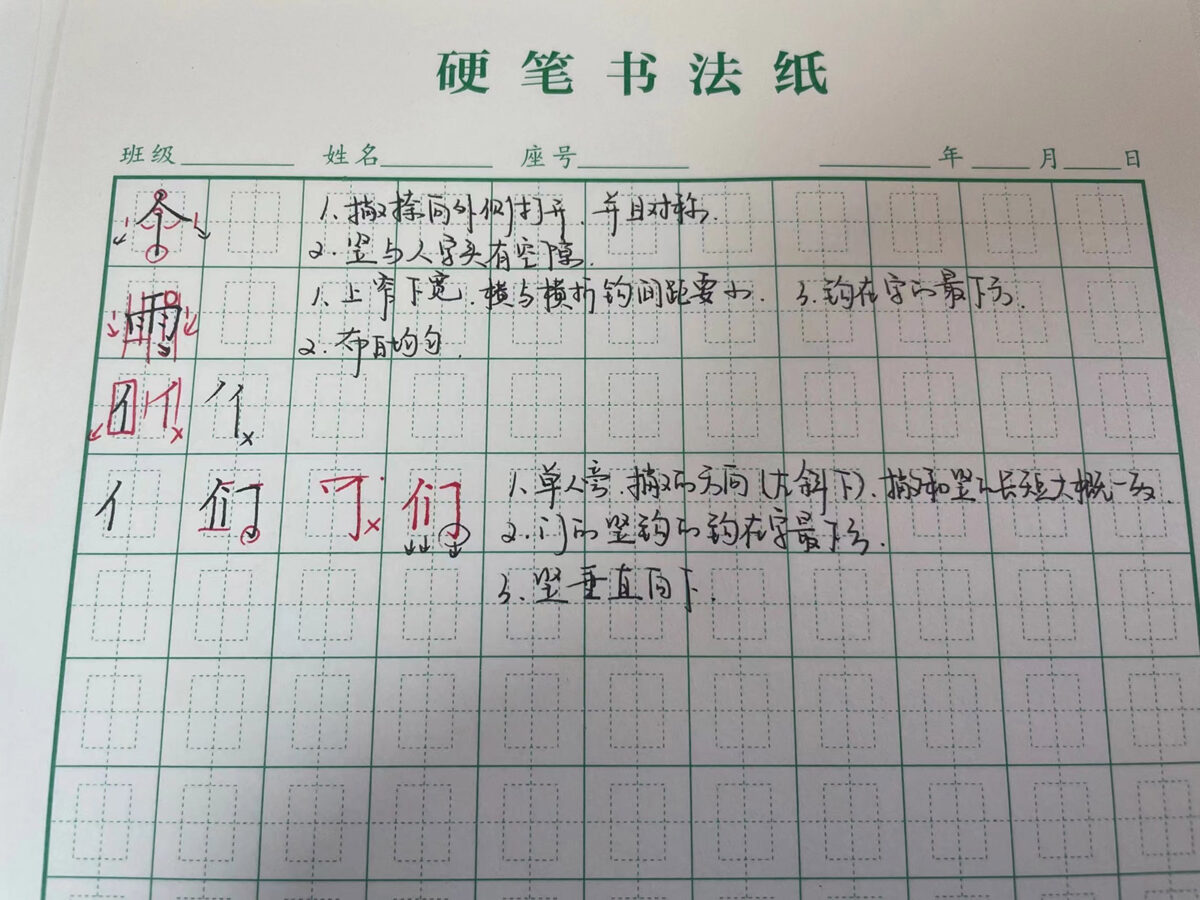 硬笔书法纸
班级 姓名 座号 年 月 日
个 1、撇捺向外侧打开、并且对称.
2、竖与人字头有空隙.
雨 1、上窄下宽、横与横折钩间距要小、 3、钩在字的最下方.
2、布白均匀.
亻 亻 亻
亻 们 们 1、单人旁、撇的方向(左斜下)、撇和竖的长短大概一致
2、门的竖钩的钩在字最下方.
3、竖垂直向下.